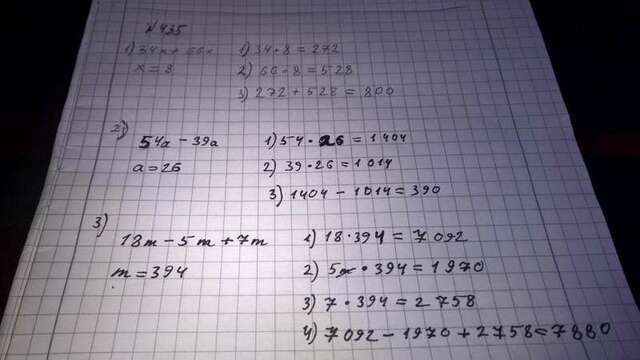 № 435
1) 34x + 66x
x = 8
1) 34 · 8 = 272
2) 66 · 8 = 528
3) 272 + 528 = 800
2)
54a - 39a
a = 26
1) 54 · 26 = 1404
2) 39 · 26 = 1014
3) 1404 - 1014 = 390
3)
18m - 5m + 7m
m = 394
1) 18 · 394 = 7092
2) 5 · 394 = 1970
3) 7 · 394 = 2758
4) 7092 - 1970 + 2758 = 7880